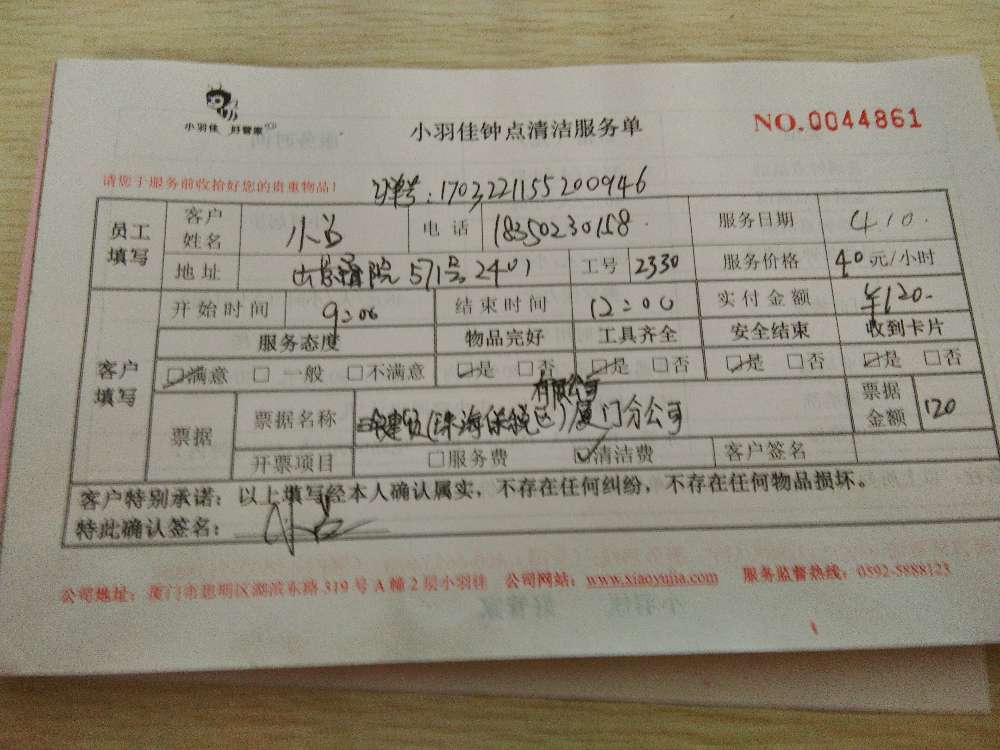 小羽佳 好管家
小羽佳钟点清洁服务单
NO.0044861
请您于服务前收拾好您的贵重物品!
单号:1703221155200946
员工填写 客户姓名 电话 18350230158 服务日期 4.10.
地址 571号2401 工号 2330 服务价格 40元/小时
客户填写 开始时间 9:00 结束时间 12:00 实付金额 ¥120-
服务态度 物品完好 工具齐全 安全结束 收到卡片
☑满意 □一般 □不满意 ☑是 □否 ☑是 □否 ☑是 □否 ☑是 □否
票据 票据名称 (珠海保税区)有限公司厦门分公司 票据金额 120
开票项目 □服务费 ☑清洁费 客户签名
客户特别承诺:以上填写经本人确认属实,不存在任何纠纷,不存在任何物品损坏。
特此确认签名:
公司地址:厦门市思明区湖滨东路319号A幢2层小羽佳 公司网站:www.xiaoyujia.com 服务监督热线:0592-5888123